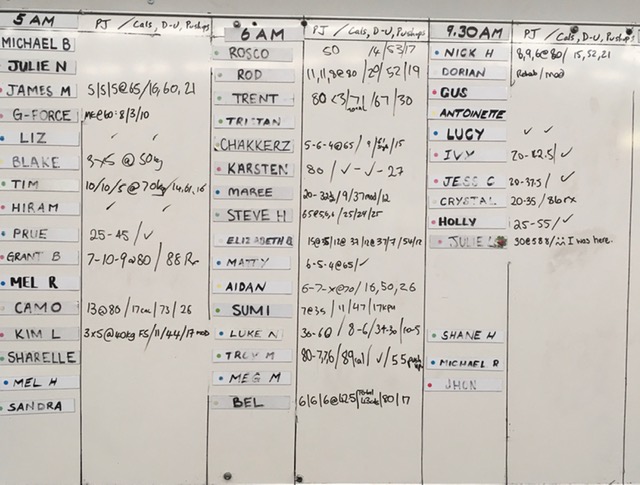 5 AM PJ / Cals, D-U, Pushups
MICHAEL B
JULIE N
JAMES M 5/5/5@65/16,60,21
G-FORCE @60-8/3/10
LIZ ✓ ✓
BLAKE @50kg
TIM 10/10/5@70kg/14,61,16
HIRAM ✓ ✓
PRUE 25-45/✓
GRANT B 7-10-9@80/88
MEL R
CAMO 13@80/17cal/73/26
KIM L 3x5@40kg FS/11/44/17mod
SHARELLE
MEL H
SANDRA
6 AM PJ / Cals, D-U, Pushups
ROSCO 50 /4/53/17
ROD 11,11,8@80/29/52/19
TRENT 80<3/71/67/30
TRISTAN
CHAKKERZ 5-6-4@65/9/ /15
KARSTEN 80/✓-✓-27
MAREE 20-32½/9/37mod/12
STEVE H 65@5,6,6/25/24/25
ELIZABETH B
MATTY 6-5-4@65/✓
AIDAN 6-7-x@70/16,50,26
SUMI 7@35/11/47/17
LUKE N 30-60/8-6/
TROY M 80-7,7,6/89cal/✓/55
MEG M
BEL 6/6/6@42.5/ /80/17
9.30AM PJ / Cals, D-U, Pushups
NICK H 8,9,6@80/15,52,21
DORIAN Rehab/mod
GUS
ANTOINETTE
LUCY ✓ ✓
IVY 20-82.5/✓
JESS C 20-37.5/✓
CRYSTAL 20-35/
HOLLY 25-55/✓
JULIE I was here.
SHANE H
MICHAEL R
JHON